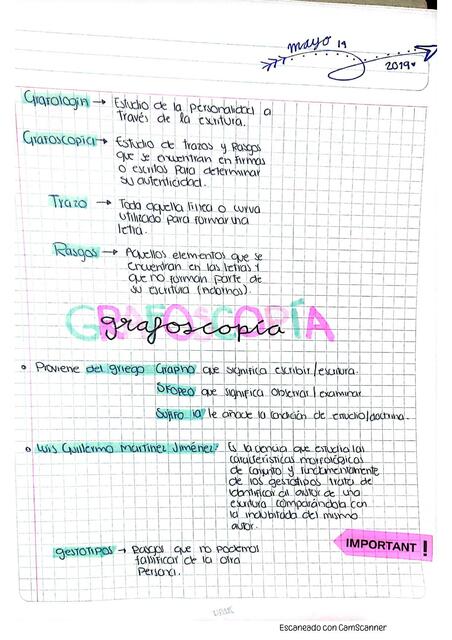 mayo 19
2019
Grafología → Estudio de la personalidad a
través de la escritura.
Grafoscopica → Estudio de trazos y Rasgos
que se encuentran en firmas
o escritos para determinar
su autenticidad.
Trazo → Toda aquella línea o curva
utilizado para formar una
letra.
Rasgos → Aquellos elementos que se
encuentran en las letras y
que no forman parte de
su escritura (adornos).
GRAFOSCOPÍA
grafoscopía
• Proviene del griego Grapho que significa escribir/escritura.
SKOPEO que significa observar/examinar.
Sufijo ia le añade la condición de estudio/doctrina.
• Luis Guillermo Martinez Jiménez: Es la ciencia que estudia las
características morfológicas
de conjunto y fundamentalmente
de los gestotipos trata de
identificar al autor de una
escritura comparándola con
la indubitada del mismo
autor.
IMPORTANT !
gestotipos → Rasgos que no podemos
falsificar de la otra
persona.
Escaneado con CamScanner